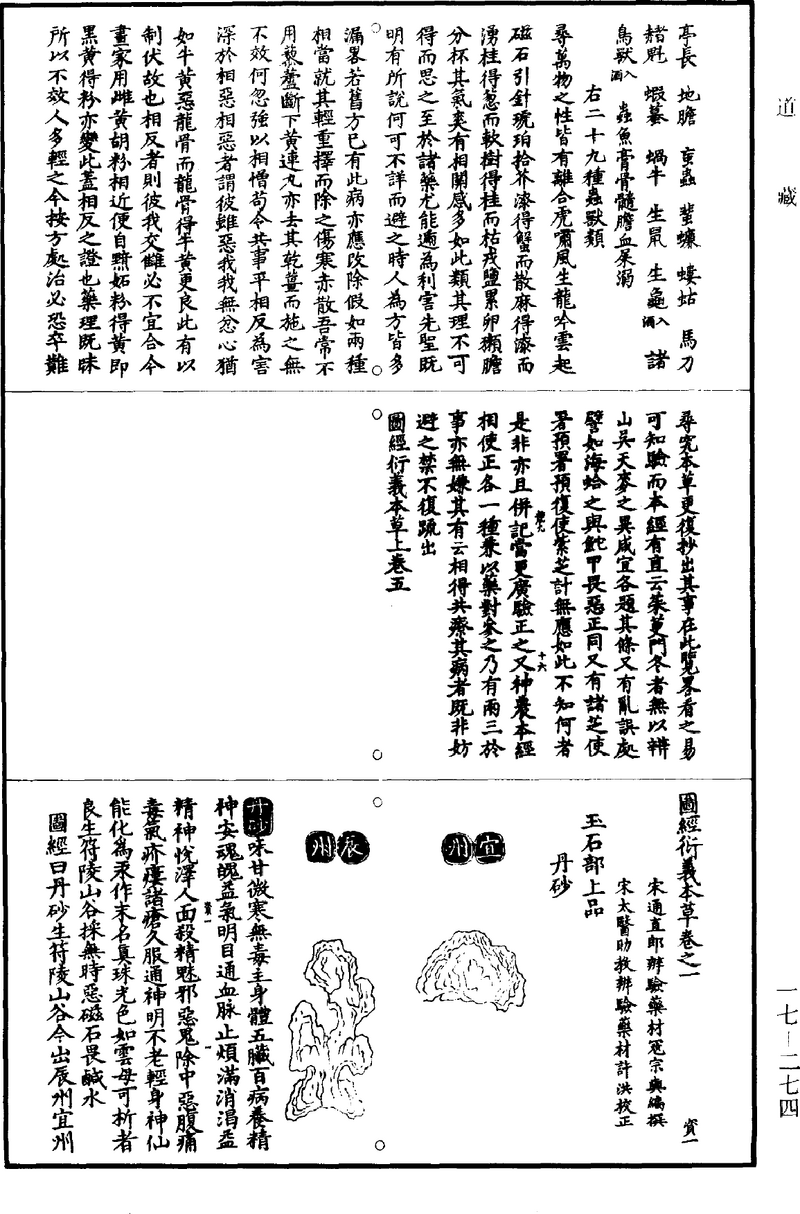 道藏
亭長　地膽　䖟蟲　蜚蠊　螻蛄　馬刀
赭魁　蝦蟇　蝸牛　生鼠　生龜入酒　諸
鳥獸入酒　蟲魚膏骨髓膽血屎溺
右二十九種蟲獸類
尋萬物之性皆有離合虎嘯風生龍吟雲起
磁石引針琥珀拾芥漆得蟹而散麻得漆而
湧桂得葱而軟樹得桂而枯戎鹽累卵獺膽
分杯其氣爽有相關感多如此類其理不可
得而思之至於諸藥尤能遞為利害先聖既
明有所說何可不詳而避之時人為方皆多
漏畧若舊方已有此病亦應改除假如兩種
相當就其輕重擇而除之傷寒赤散吾常不
用藜蘆斷下黃連丸亦去其乾薑而施之無
不效何忽強以相憎苟令共事乎相反為害
深於相惡相惡者謂彼雖惡我我無忿心猶
如牛黃惡龍骨而龍骨得牛黃更良此有以
制伏故也相反者則彼我交讎必不宜合今
畫家用雌黃胡粉相近便自黯妬粉得黃即
黑黃得粉亦變此蓋相反之證也藥理既昧
所以不效人多輕之今按方處治必恐卒難
尋究本草更復抄出其事在此覽畧看之易
可知驗而本經有直云茱萸門冬者無以辨
山吳天麥之異咸宜各題其條又有亂誤處
譬如海蛤之與鮀甲畏惡正同又有諸芝使
署預署預復使紫芝計無應如此不知何者
是非亦且併記當更廣驗正之又神農本經
相使正各一種兼以藥對參之乃有兩三於
事亦無嫌其有云相得共療其病者既非妨
避之禁不復疏出
圖經衍義本草上卷五
圖經衍義本草卷之一
宋通直郎辨驗藥材寇宗奭編撰
宋太醫助教辨驗藥材許洪校正
玉石部上品
丹砂
宜州
辰州
丹砂味甘微寒無毒主身體五臟百病養精
神安魂魄益氣明目通血脉止煩滿消渴益
精神悅澤人面殺精魅邪惡鬼除中惡腹痛
毒氣疥瘻諸瘡久服通神明不老輕身神仙
能化為汞作末名真珠光色如雲母可析者
良生符陵山谷採無時惡磁石畏鹹水
圖經曰丹砂生符陵山谷今出辰州宜州
一七—二七四